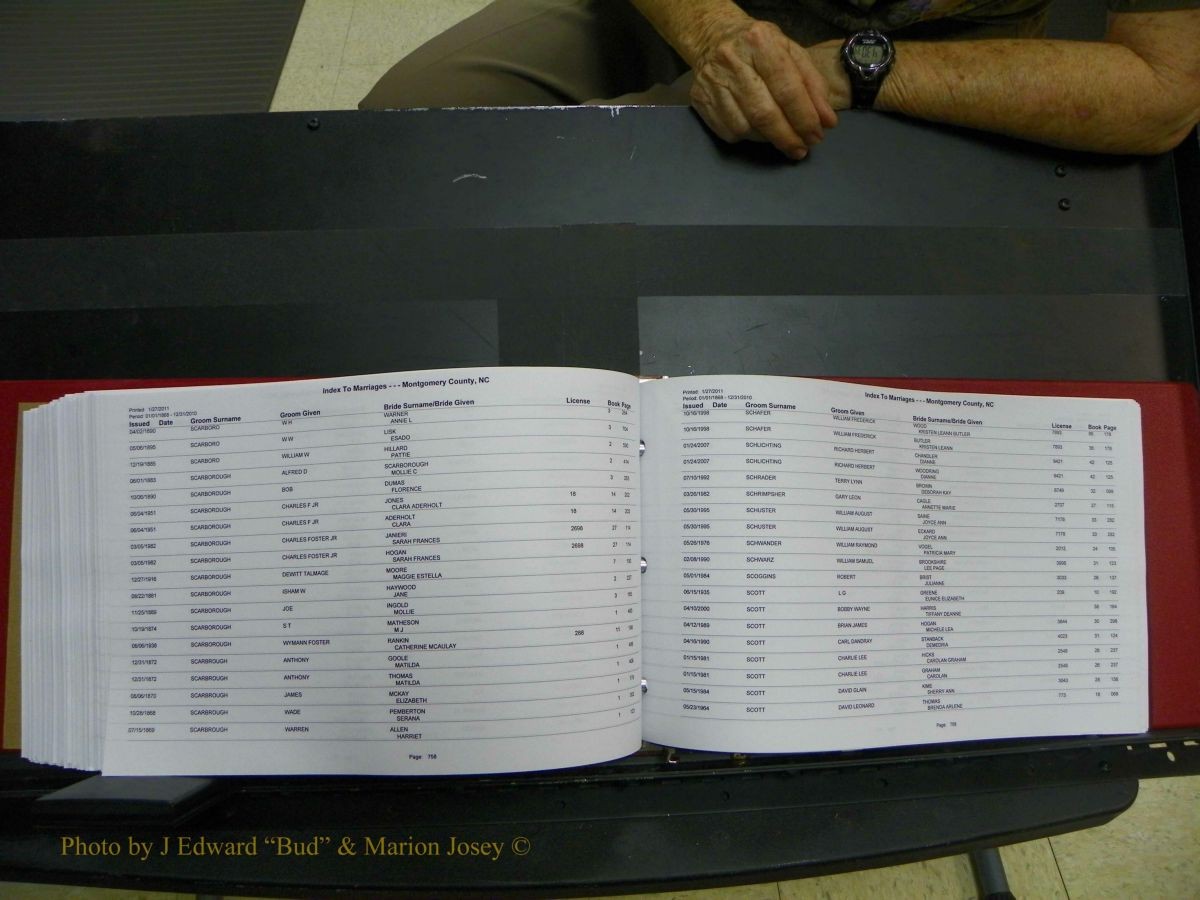 Index To Marriages - - - Montgomery County, NC
Printed 1/27/2011
Period: 01/01/1868 - 12/31/2010
Issued Date Groom Surname Groom Given Bride Surname/Bride Given License Book Page
04/02/1890 SCARBORO W H WARNER
ANNIE L
05/06/1895 SCARBORO W W LISK
ESADO
12/19/1885 SCARBORO WILLIAM W HILLARD
PATTIE
06/01/1883 SCARBOROUGH ALFRED D SCARBOROUGH
MOLLIE C
10/05/1890 SCARBOROUGH BOB DUMAS
FLORENCE
06/04/1951 SCARBOROUGH CHARLES F JR JONES 18 14
CLARA ADERHOLT
06/04/1951 SCARBOROUGH CHARLES F JR ADERHOLT 18 14
CLARA
03/05/1982 SCARBOROUGH CHARLES FOSTER JR JANIERI 2698 27 114
SARAH FRANCES
03/05/1982 SCARBOROUGH CHARLES FOSTER JR HOGAN 2698 27 114
SARAH FRANCES
12/27/1916 SCARBOROUGH DEWITT TALMAGE MOORE
MAGGIE ESTELLA
08/22/1881 SCARBOROUGH ISHAM W HAYWOOD
JANE
11/25/1889 SCARBOROUGH JOE INGOLD
MOLLIE
10/19/1874 SCARBOROUGH S T MATHESON
M J
06/06/1938 SCARBOROUGH WYMANN FOSTER RANKIN 268
CATHERINE MCAULAY
12/31/1872 SCARBROUGH ANTHONY GOOLE
MATILDA
12/31/1872 SCARBROUGH ANTHONY THOMAS
MATILDA
08/06/1870 SCARBROUGH JAMES MCKAY
ELIZABETH
10/28/1868 SCARBROUGH WADE PEMBERTON
SERANA
07/15/1869 SCARBROUGH WARREN ALLEN
HARRIET
Page 758
Index To Marriages - - - Montgomery County, NC
Printed 1/27/2011
Period: 01/01/1868 - 12/31/2010
Issued Date Groom Surname Groom Given Bride Surname/Bride Given License Book Page
10/16/1998 SCHAFER WILLIAM FREDERICK WOOD 7893
KRISTEN LEANN BUTLER
10/16/1998 SCHAFER WILLIAM FREDERICK BUTLER 7893
KRISTEN LEANN
01/24/2007 SCHLICHTING RICHARD HERBERT CHANDLER 9421 42 125
DIANNE
01/24/2007 SCHLICHTING RICHARD HERBERT WOODRING 9421 42 125
DIANNE
07/10/1992 SCHRADER TERRY LYNN BROWN 32
DEBORAH KAY
03/26/1982 SCHRIMPSHER GARY LEON CAGLE 2707 27 115
ANNETTE MARIE
05/30/1995 SCHUSTER WILLIAM AUGUST SAINE 7178 33 232
JOYCE ANN
05/30/1995 SCHUSTER WILLIAM AUGUST ECKARD 7178 33 232
JOYCE ANN
05/26/1976 SCHWANDER WILLIAM RAYMOND VOGEL 2012 24
PATRICIA MARY
02/08/1990 SCHWARZ WILLIAM SAMUEL BROOKSHIRE 31 123
LEE PAGE
05/01/1984 SCOGGINS ROBERT BRIST 3033 28 137
JULIANNE
06/15/1935 SCOTT L G GREENE 239 10 192
EUNICE ELIZABETH
04/10/2000 SCOTT BOBBY WAYNE HARRIS
TIFFANY DEANNE
04/12/1989 SCOTT BRIAN JAMES HOGAN 3844 30 298
MICHELE LEA
04/16/1990 SCOTT CARL DANDRAY STANBACK 4023 31 124
DEMEDRIA
01/15/1981 SCOTT CHARLIE LEE HICKS 2548 26 237
CAROLAN GRAHAM
01/15/1981 SCOTT CHARLIE LEE GRAHAM 2548 26 237
CAROLAN
05/15/1984 SCOTT DAVID GLAIN KIME 3043 28 138
SHERRY ANN
05/23/1964 SCOTT DAVID LEONARD THOMAS 773 18 069
BRENDA ARLENE
Page 759
Photo by J Edward “Bud” & Marion Josey ©